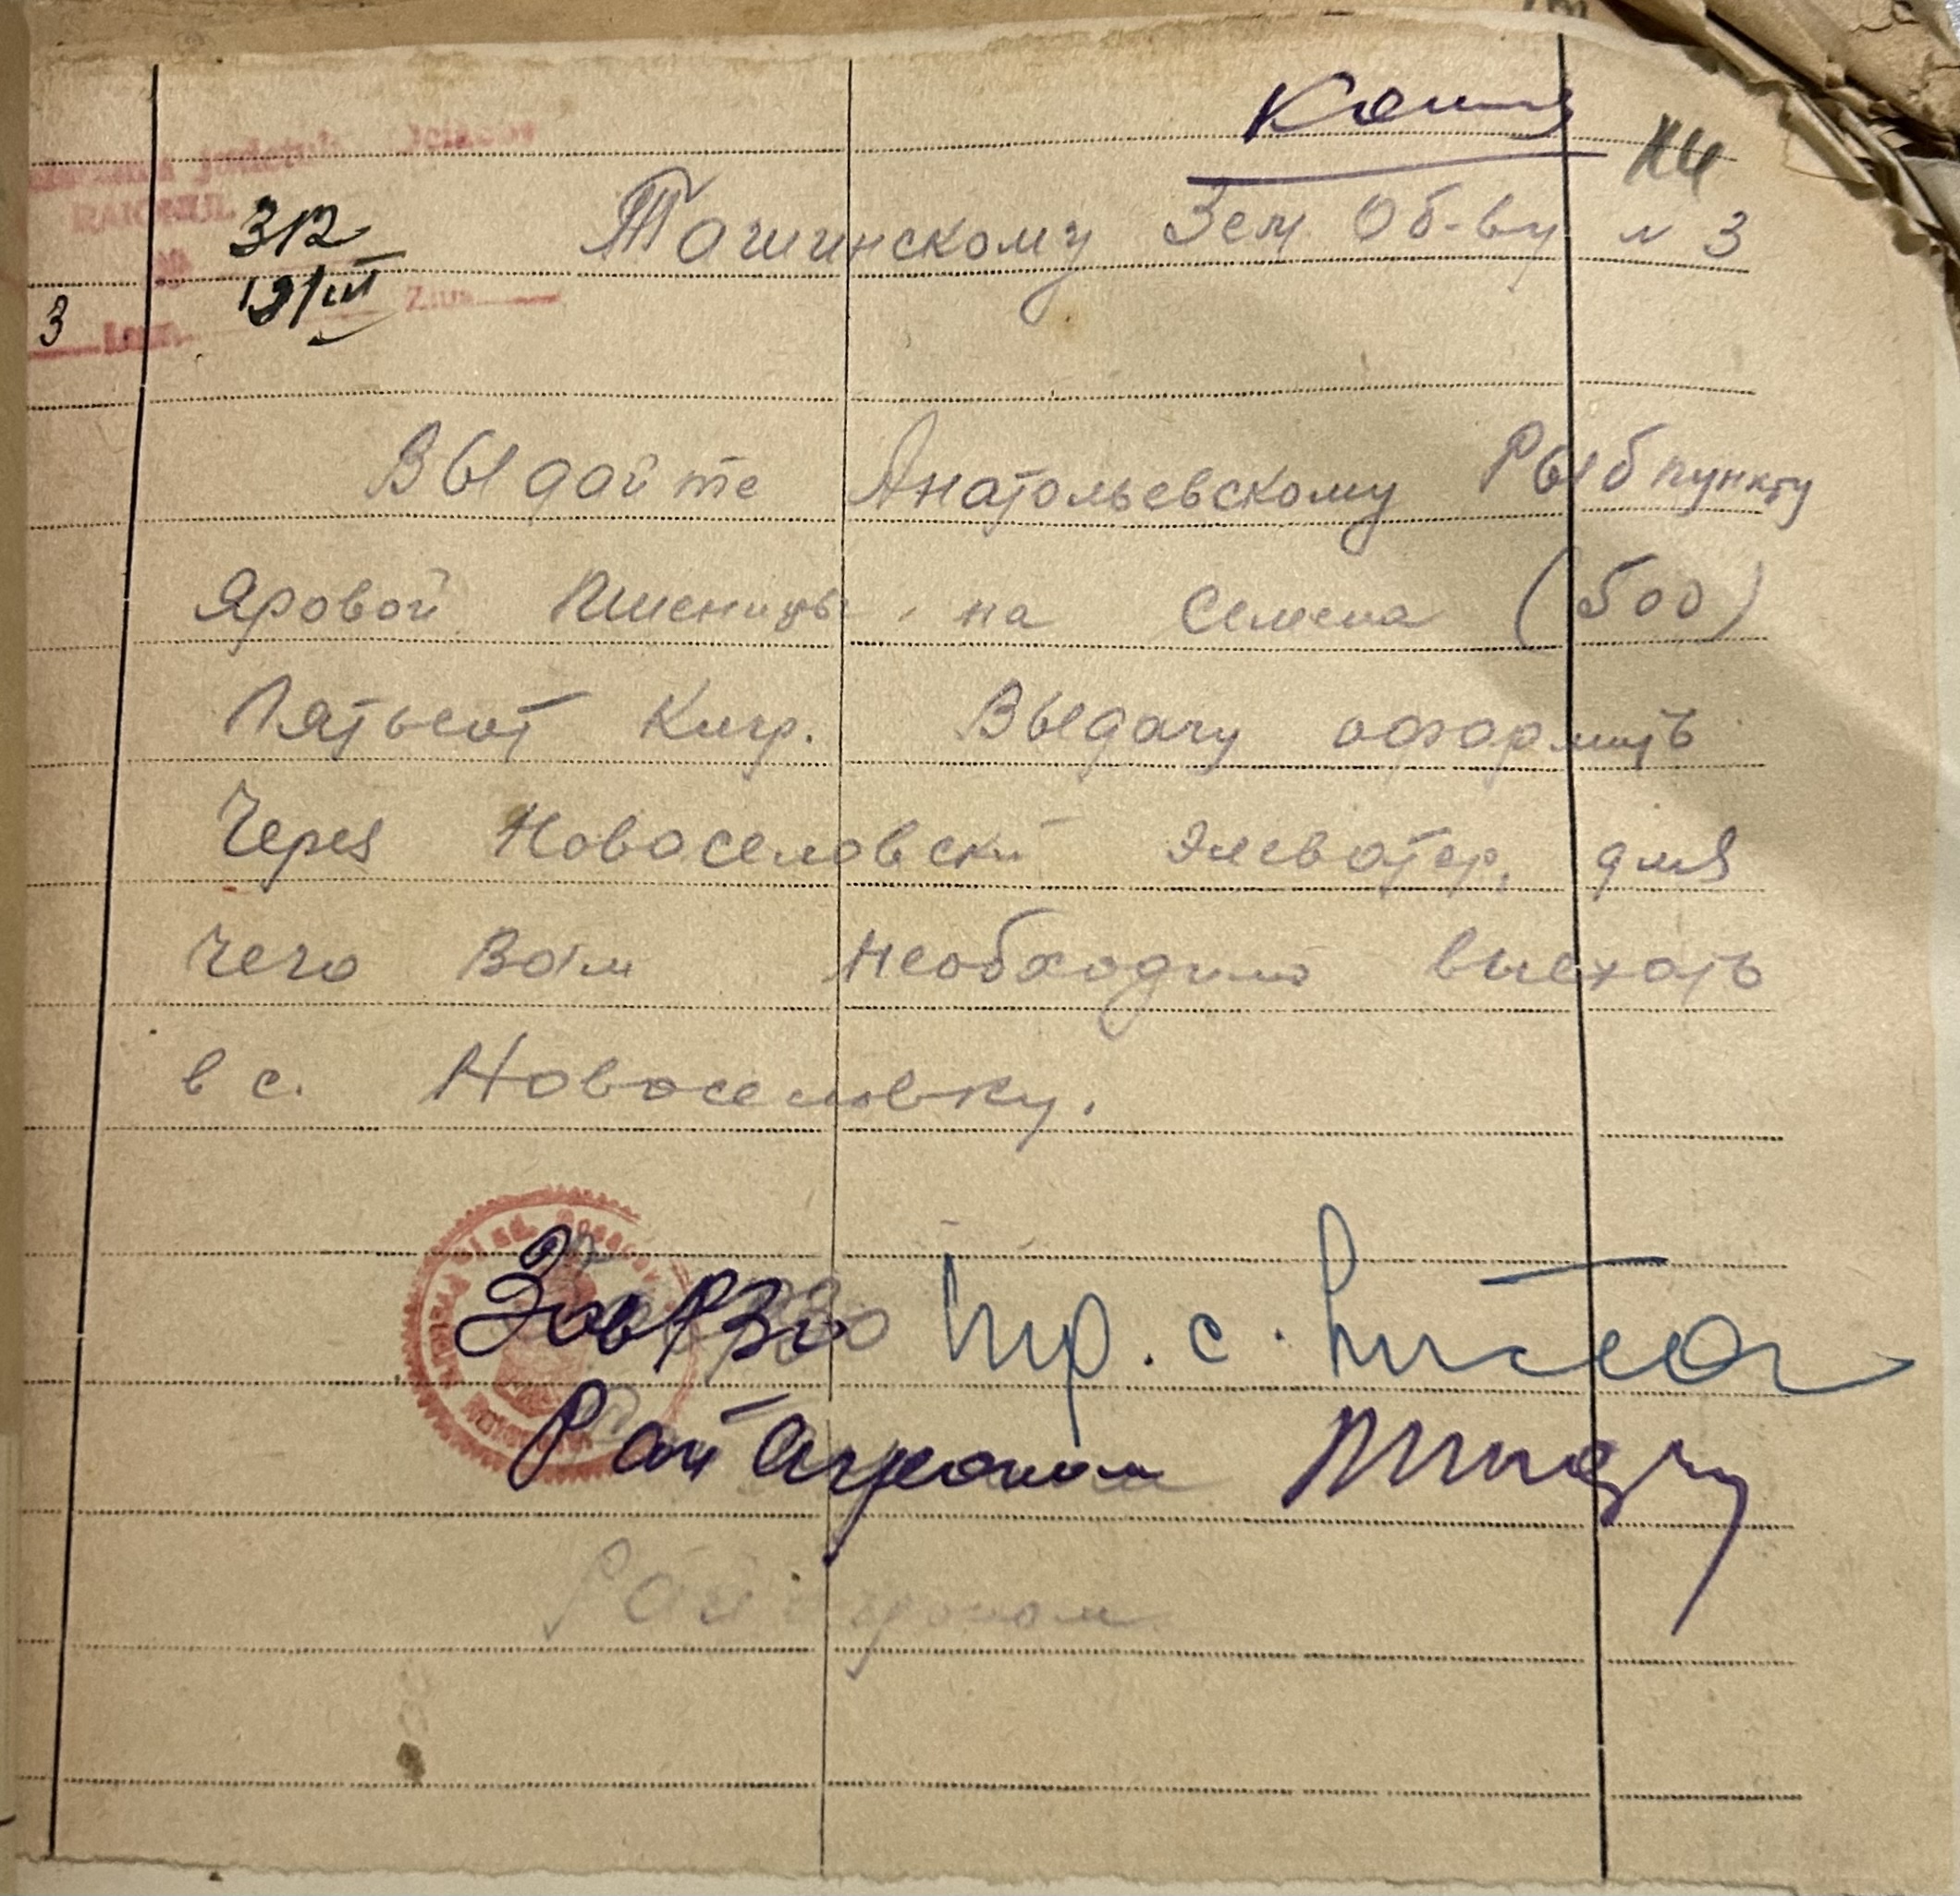 Копия
312
19/III
3
Ташинскому Зем Об-ву № 3
RAIONUL
Выдайте Анатольевскому Рыбпункту
Яровой Пшеницы на Семена (500)
Пятьсот Килр. Выдачу оформить
Через Новоселовски элеватор, для
чего Вам необходимо выехать
в с. Новоселовку.
ЗавРЗО
Райагроном
Райагроном